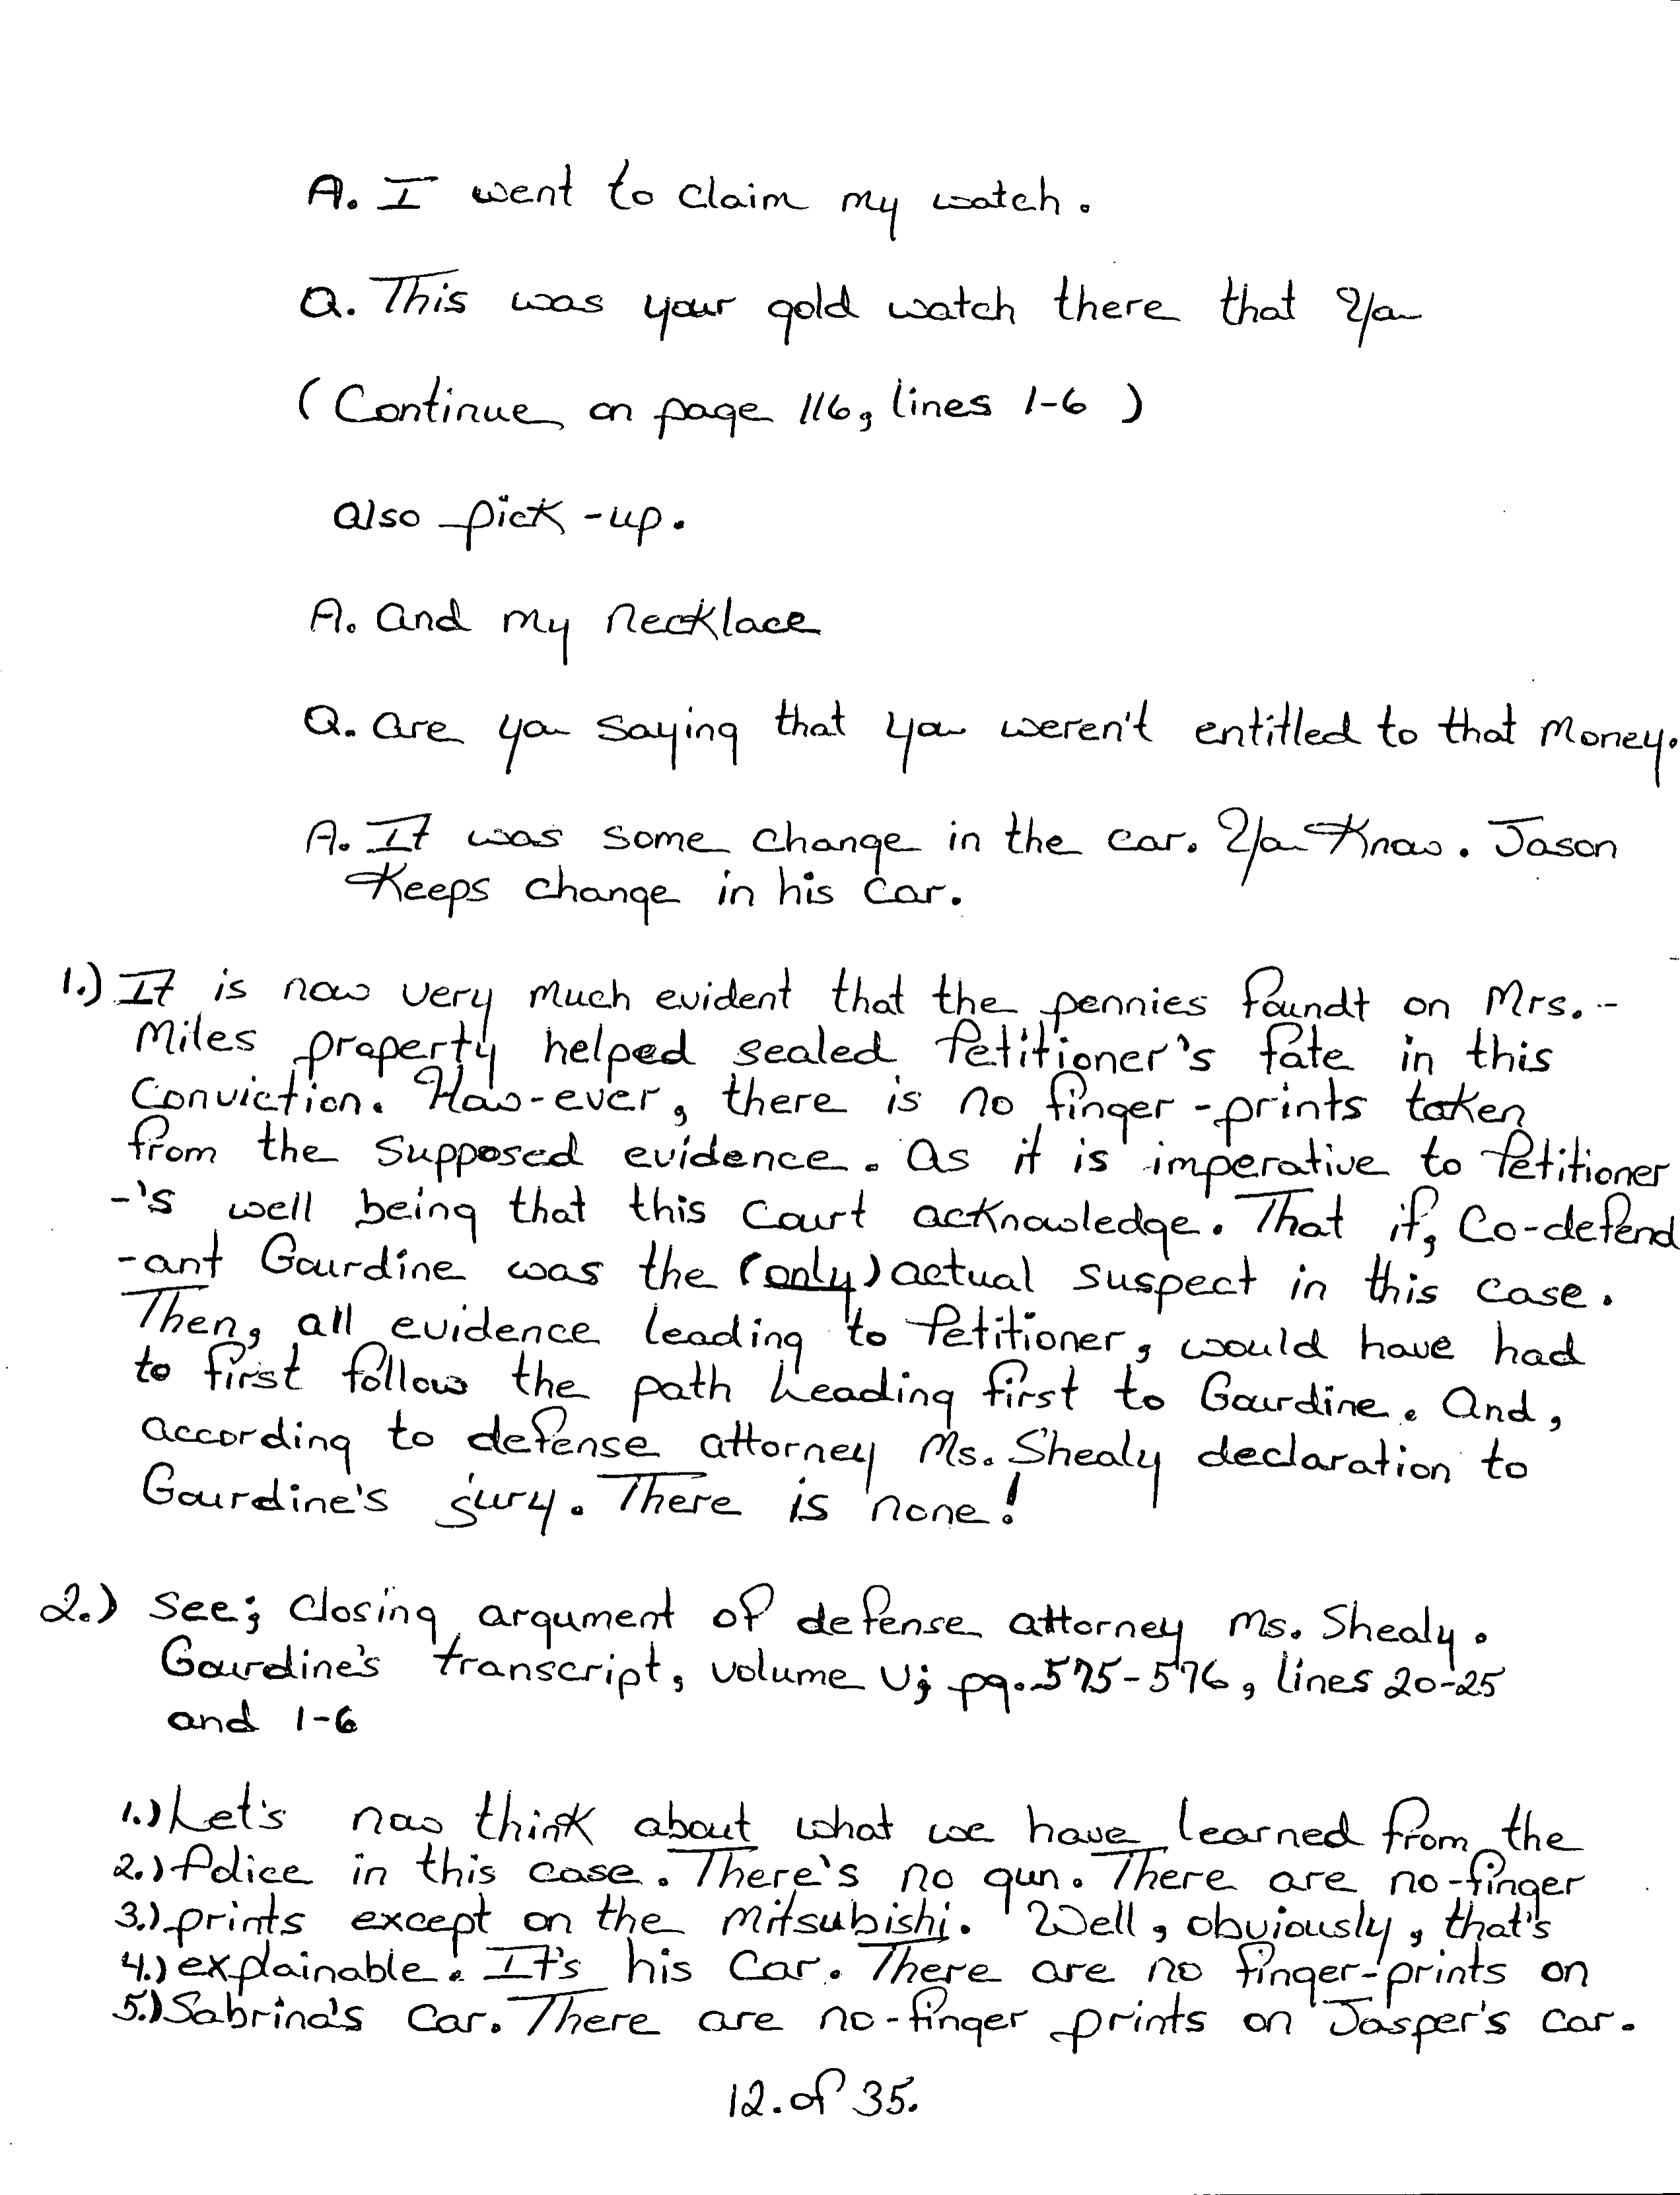 A. I went to claim my watch.
Q. This was your gold watch there that You
(Continue on page 116, lines 1-6)
also pick-up.
A. and my necklace
Q. are you saying that you weren't entitled to that money.
A. It was some change in the car. You Know. Jason
Keeps change in his car.
1.) It is now very much evident that the pennies foundt on Mrs. -
Miles property helped sealed Petitioner's fate in this
Conviction. How-ever, there is no finger-prints taken
from the supposed evidence. As it is imperative to Petitioner
-'s well being that this Court acknowledge. That if, Co-defend
-ant Gourdine was the (only) actual suspect in this case.
Then, all evidence leading to Petitioner, would have had
to first follow the path heading first to Gourdine. And,
according to defense attorney Ms. Shealy declaration to
Gourdine's jury. There is none!
2.) See; Closing argument of defense attorney Ms. Shealy.
Gourdine's transcript, volume V; pg. 575-576, lines 20-25
and 1-6
1.) Let's now think about what we have learned from the
2.) Police in this case. There's no gun. There are no-finger
3.) prints except on the Mitsubishi. Well, obviously, that's
4.) explainable. It's his Car. There are no finger-prints on
5.) Sabrina's Car. There are no-finger prints on Jasper's car.
12. of 35.